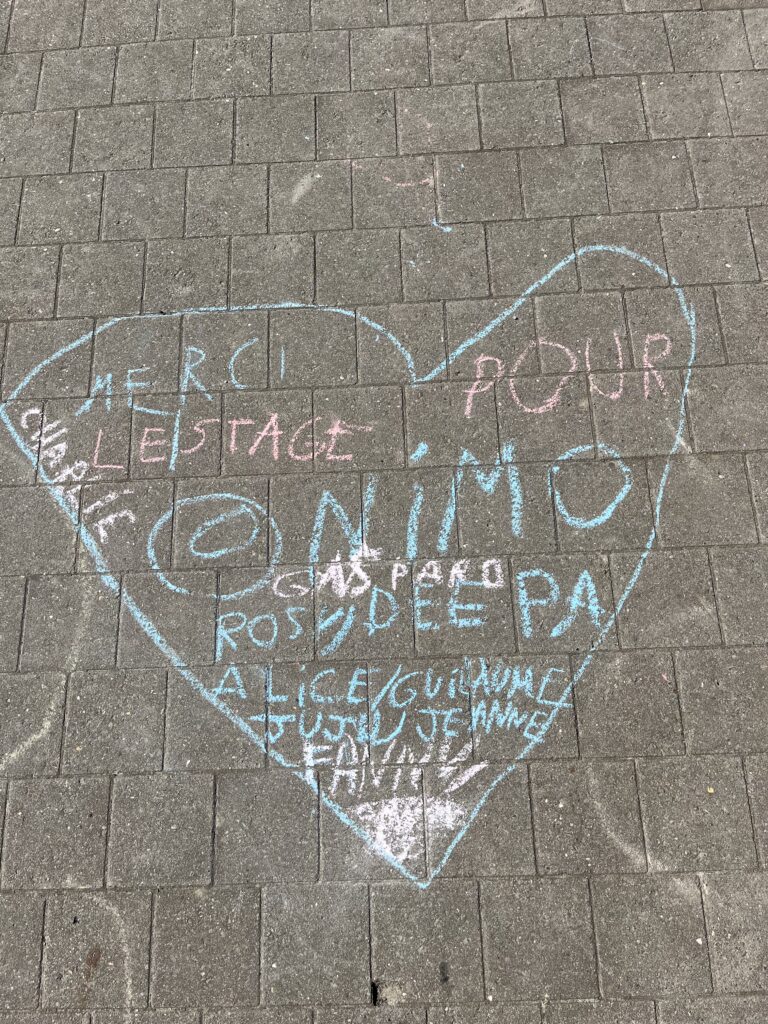 MERCI POUR
LE STAGE
ONIMO
CHARLIE
GASPARD
ROSY DEEPA
ALICE/GUILLAUME
JUJU JEANNE
FANNY